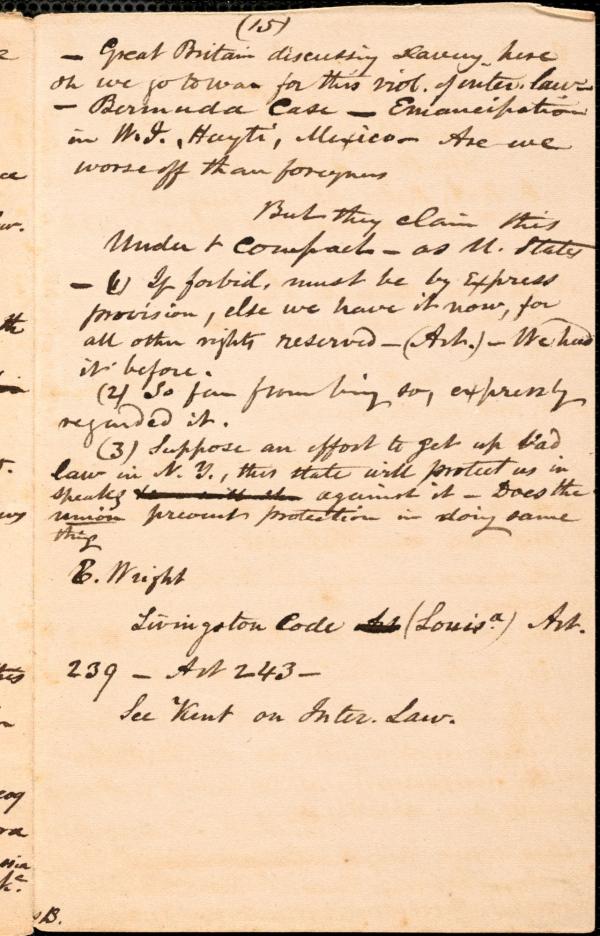 (15)
— Great Britain discussing slavery, here
Oh we go to war for this viol. of inter. law—
— Bermuda Case — Emancipation
in W. I., Hayti, Mexico— Are we
worse off than foreigners
But they claim this
Under + Compact — as U. States
— (1) If forbid, must be by Express
provision, else we have it now, for
all other rights reserved — (Art.) — We had
it before.
(2) So far from being so, expressly
regarded it.
(3) Suppose an effort to get up bad
law in N. Y., this state will protect us in
speakg against it — Does the
union prevent protection in doing same
thing
E. Wright
Livingston Code (Louisa) Art.
239 — Art 243 —
See Kent on Inter. Law.